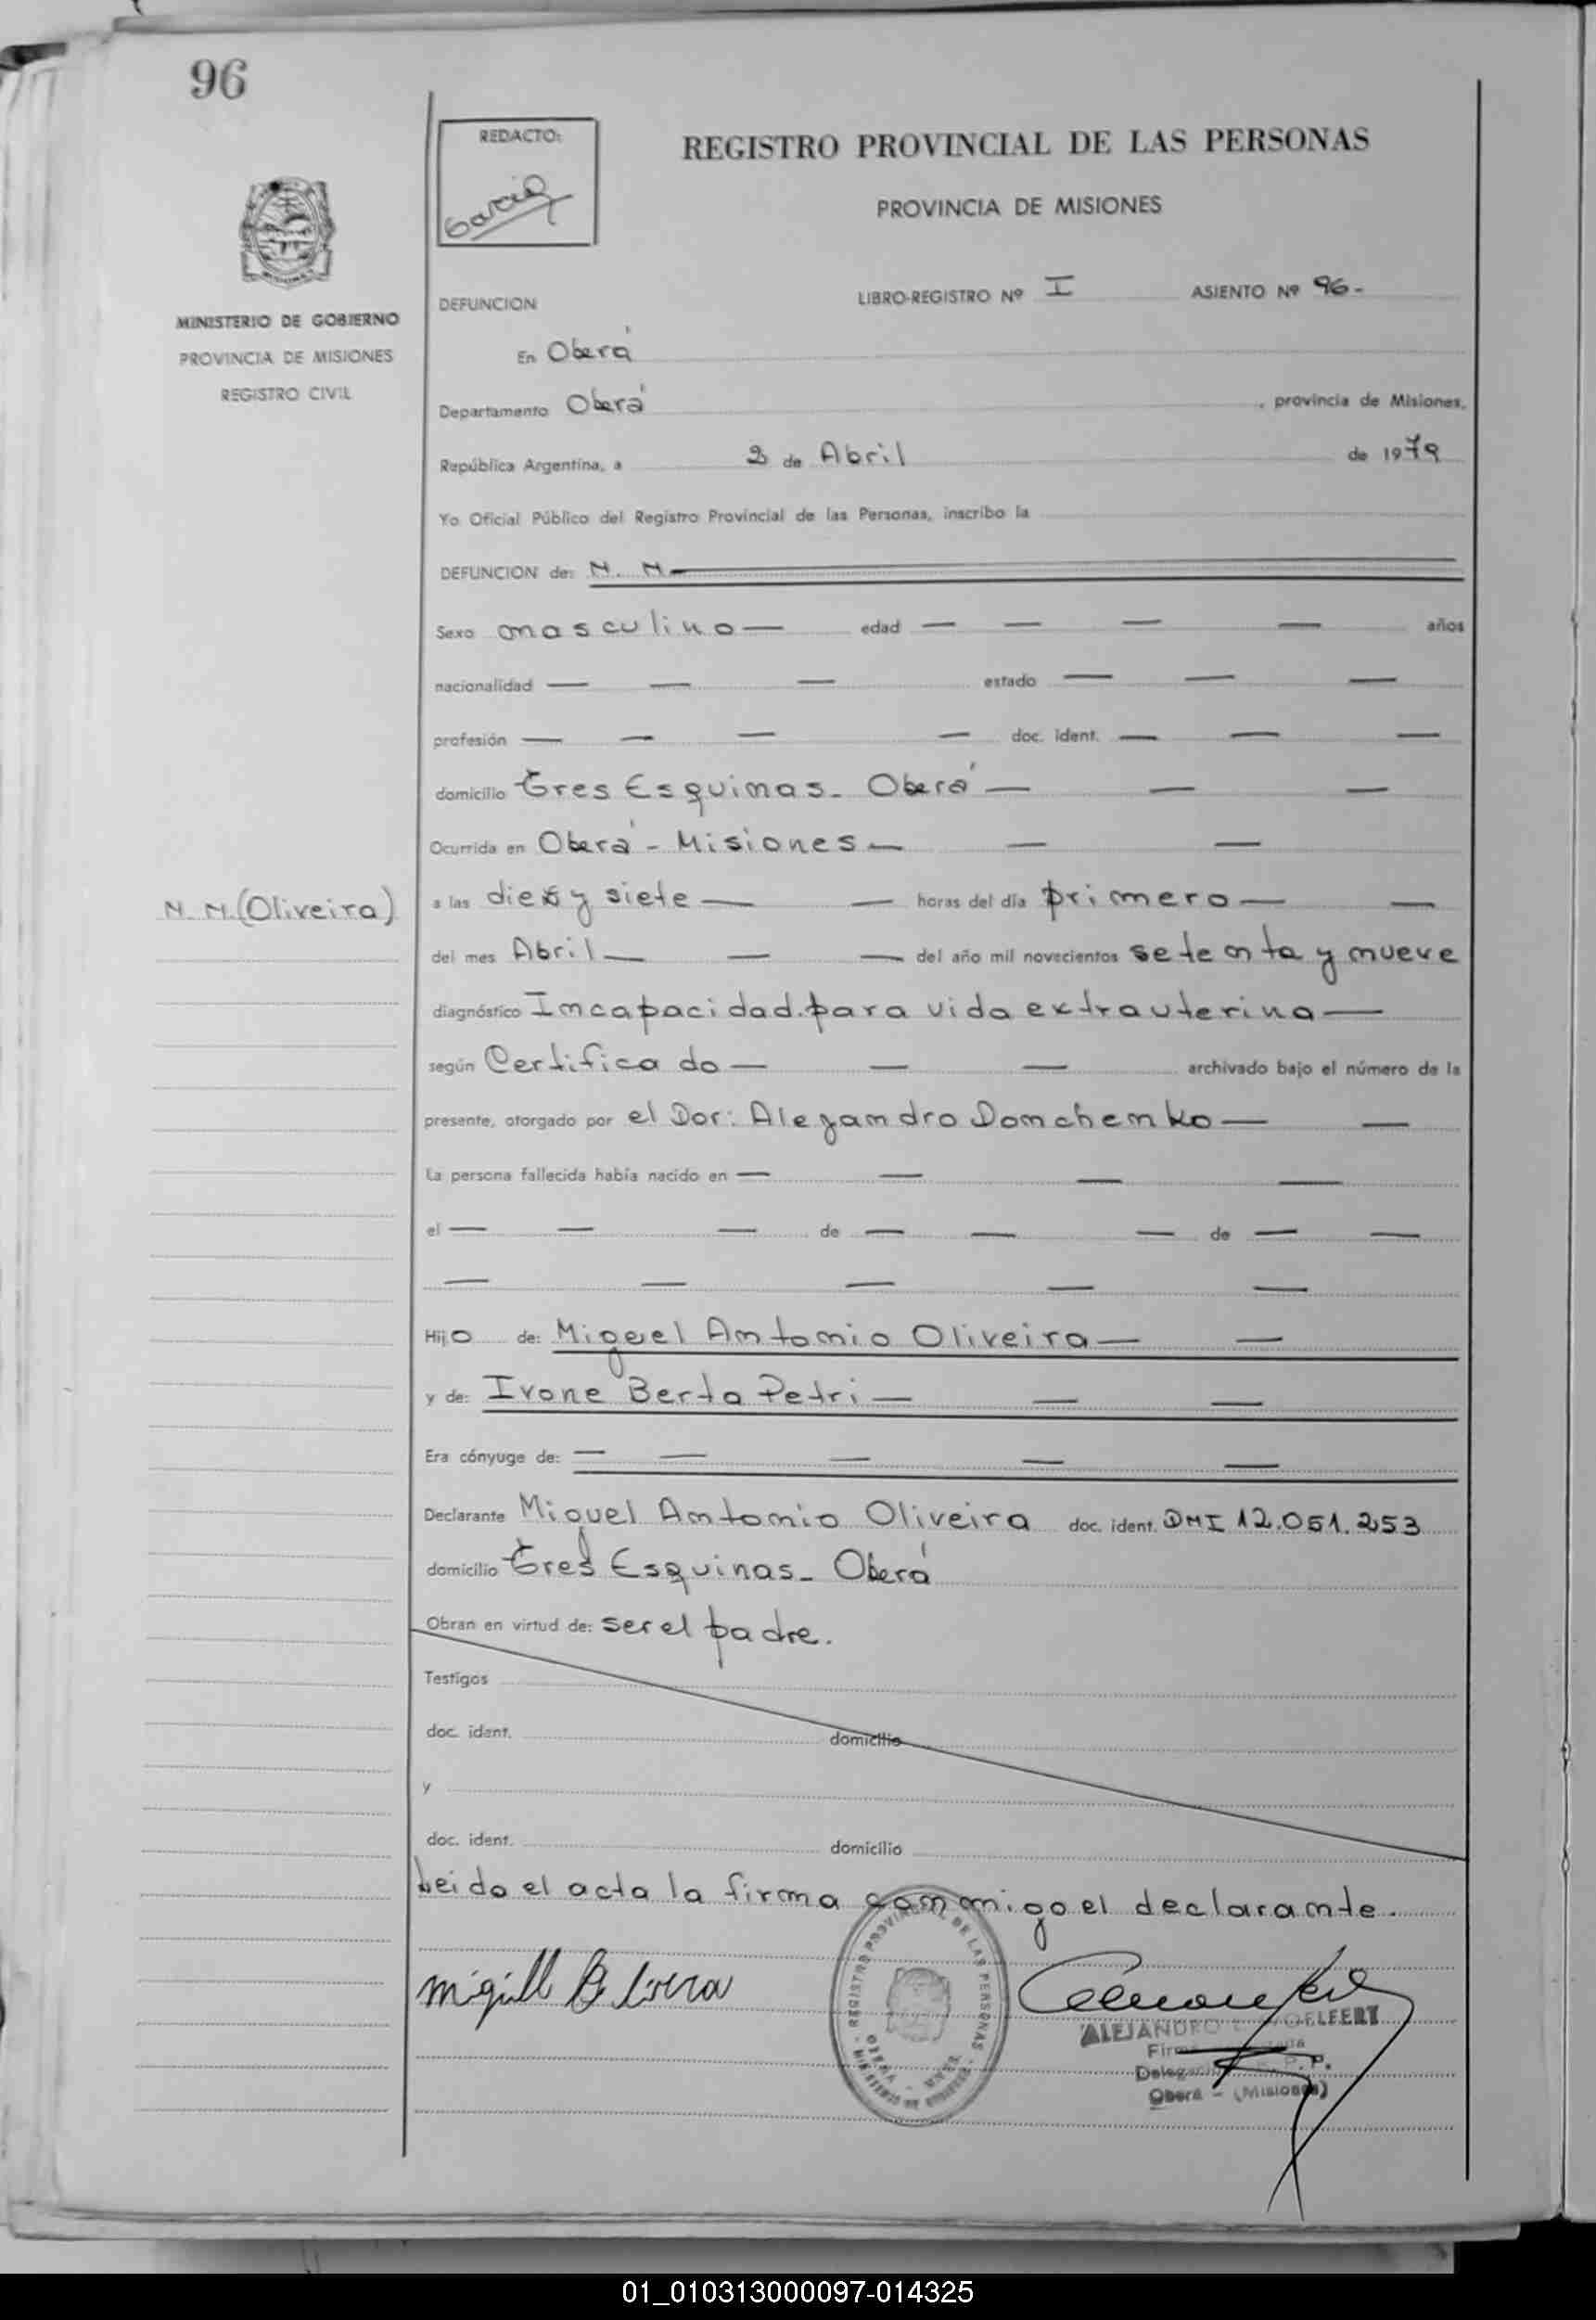 96
REDACTO:
Garcia
REGISTRO PROVINCIAL DE LAS PERSONAS
PROVINCIA DE MISIONES
MISIONES
MINISTERIO DE GOBIERNO
PROVINCIA DE MISIONES
REGISTRO CIVIL
DEFUNCION LIBRO-REGISTRO Nº I ASIENTO Nº 96-
En Oberá
Departamento Oberá, provincia de Misiones,
República Argentina, a 2 de Abril de 1979
Yo Oficial Público del Registro Provincial de las Personas, inscribo la
DEFUNCION de: N. N.
Sexo masculino — edad — — — — años
nacionalidad — — — estado — — —
profesión — — — — doc. ident. — — —
domicilio Tres Esquinas - Oberá — — —
Ocurrida en Oberá - Misiones — — —
N. N. (Oliveira)
a las diez y siete — — horas del día primero — —
del mes Abril — — — del año mil novecientos setenta y nueve
diagnóstico Incapacidad para vida extrauterina —
según Certificado — — — archivado bajo el número de la
presente, otorgado por el Dor: Alejandro Donchenko — —
La persona fallecida había nacido en — — — —
el — — — de — — — de — —
— — — — —
Hijo de: Miguel Antonio Oliveira — —
y de: Ivone Berta Petri — — —
Era cónyuge de: — — — — —
Declarante Miguel Antonio Oliveira doc. ident. DNI 12.051.253
domicilio Tres Esquinas - Oberá
Obran en virtud de: ser el padre.
Testigos
doc. ident. domicilio
y
doc. ident. domicilio
Leido el acta la firma conmigo el declarante.
REGISTRO PROVINCIAL DE LAS PERSONAS
ALEJANDRO
Oberá - (Misiones)
01_010313000097-014325